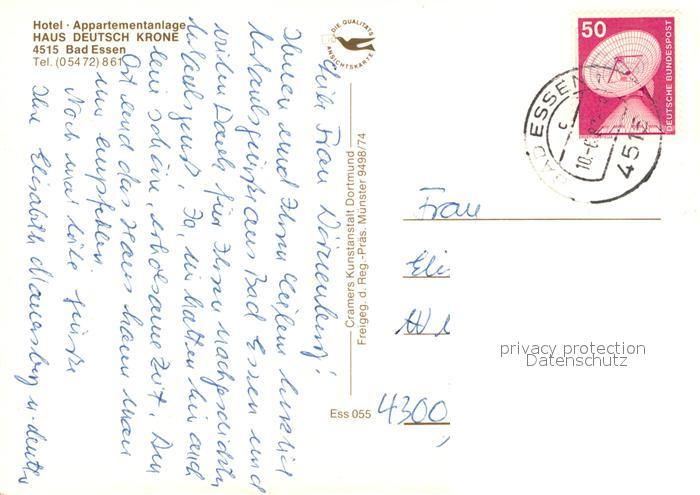 Hotel · Appartementanlage
HAUS DEUTSCH KRONE
4515 Bad Essen
Tel. (05472) 861
Liebe Frau
Ihnen und Ihren lieben herzlich
Urlaubsgrüße aus Bad Essen und
vielen Dank für Ihren nachgeschickten
Urlaubsgruß. Ja, wir hatten hier auch
eine schöne, erholsame Zeit. Den
Ort und das Haus kann man
nur empfehlen.
Noch mal liebe Grüße
Ihre Elisabeth
DIE QUALITÄTS
ANSICHTSKARTE
Cramers Kunstanstalt Dortmund
Freigeg. d. Reg.-Präs. Münster 9498/74
Ess 055
50
DEUTSCHE BUNDESPOST
BAD ESSEN
4515
c
Frau
Eli
4300
privacy protection
Datenschutz